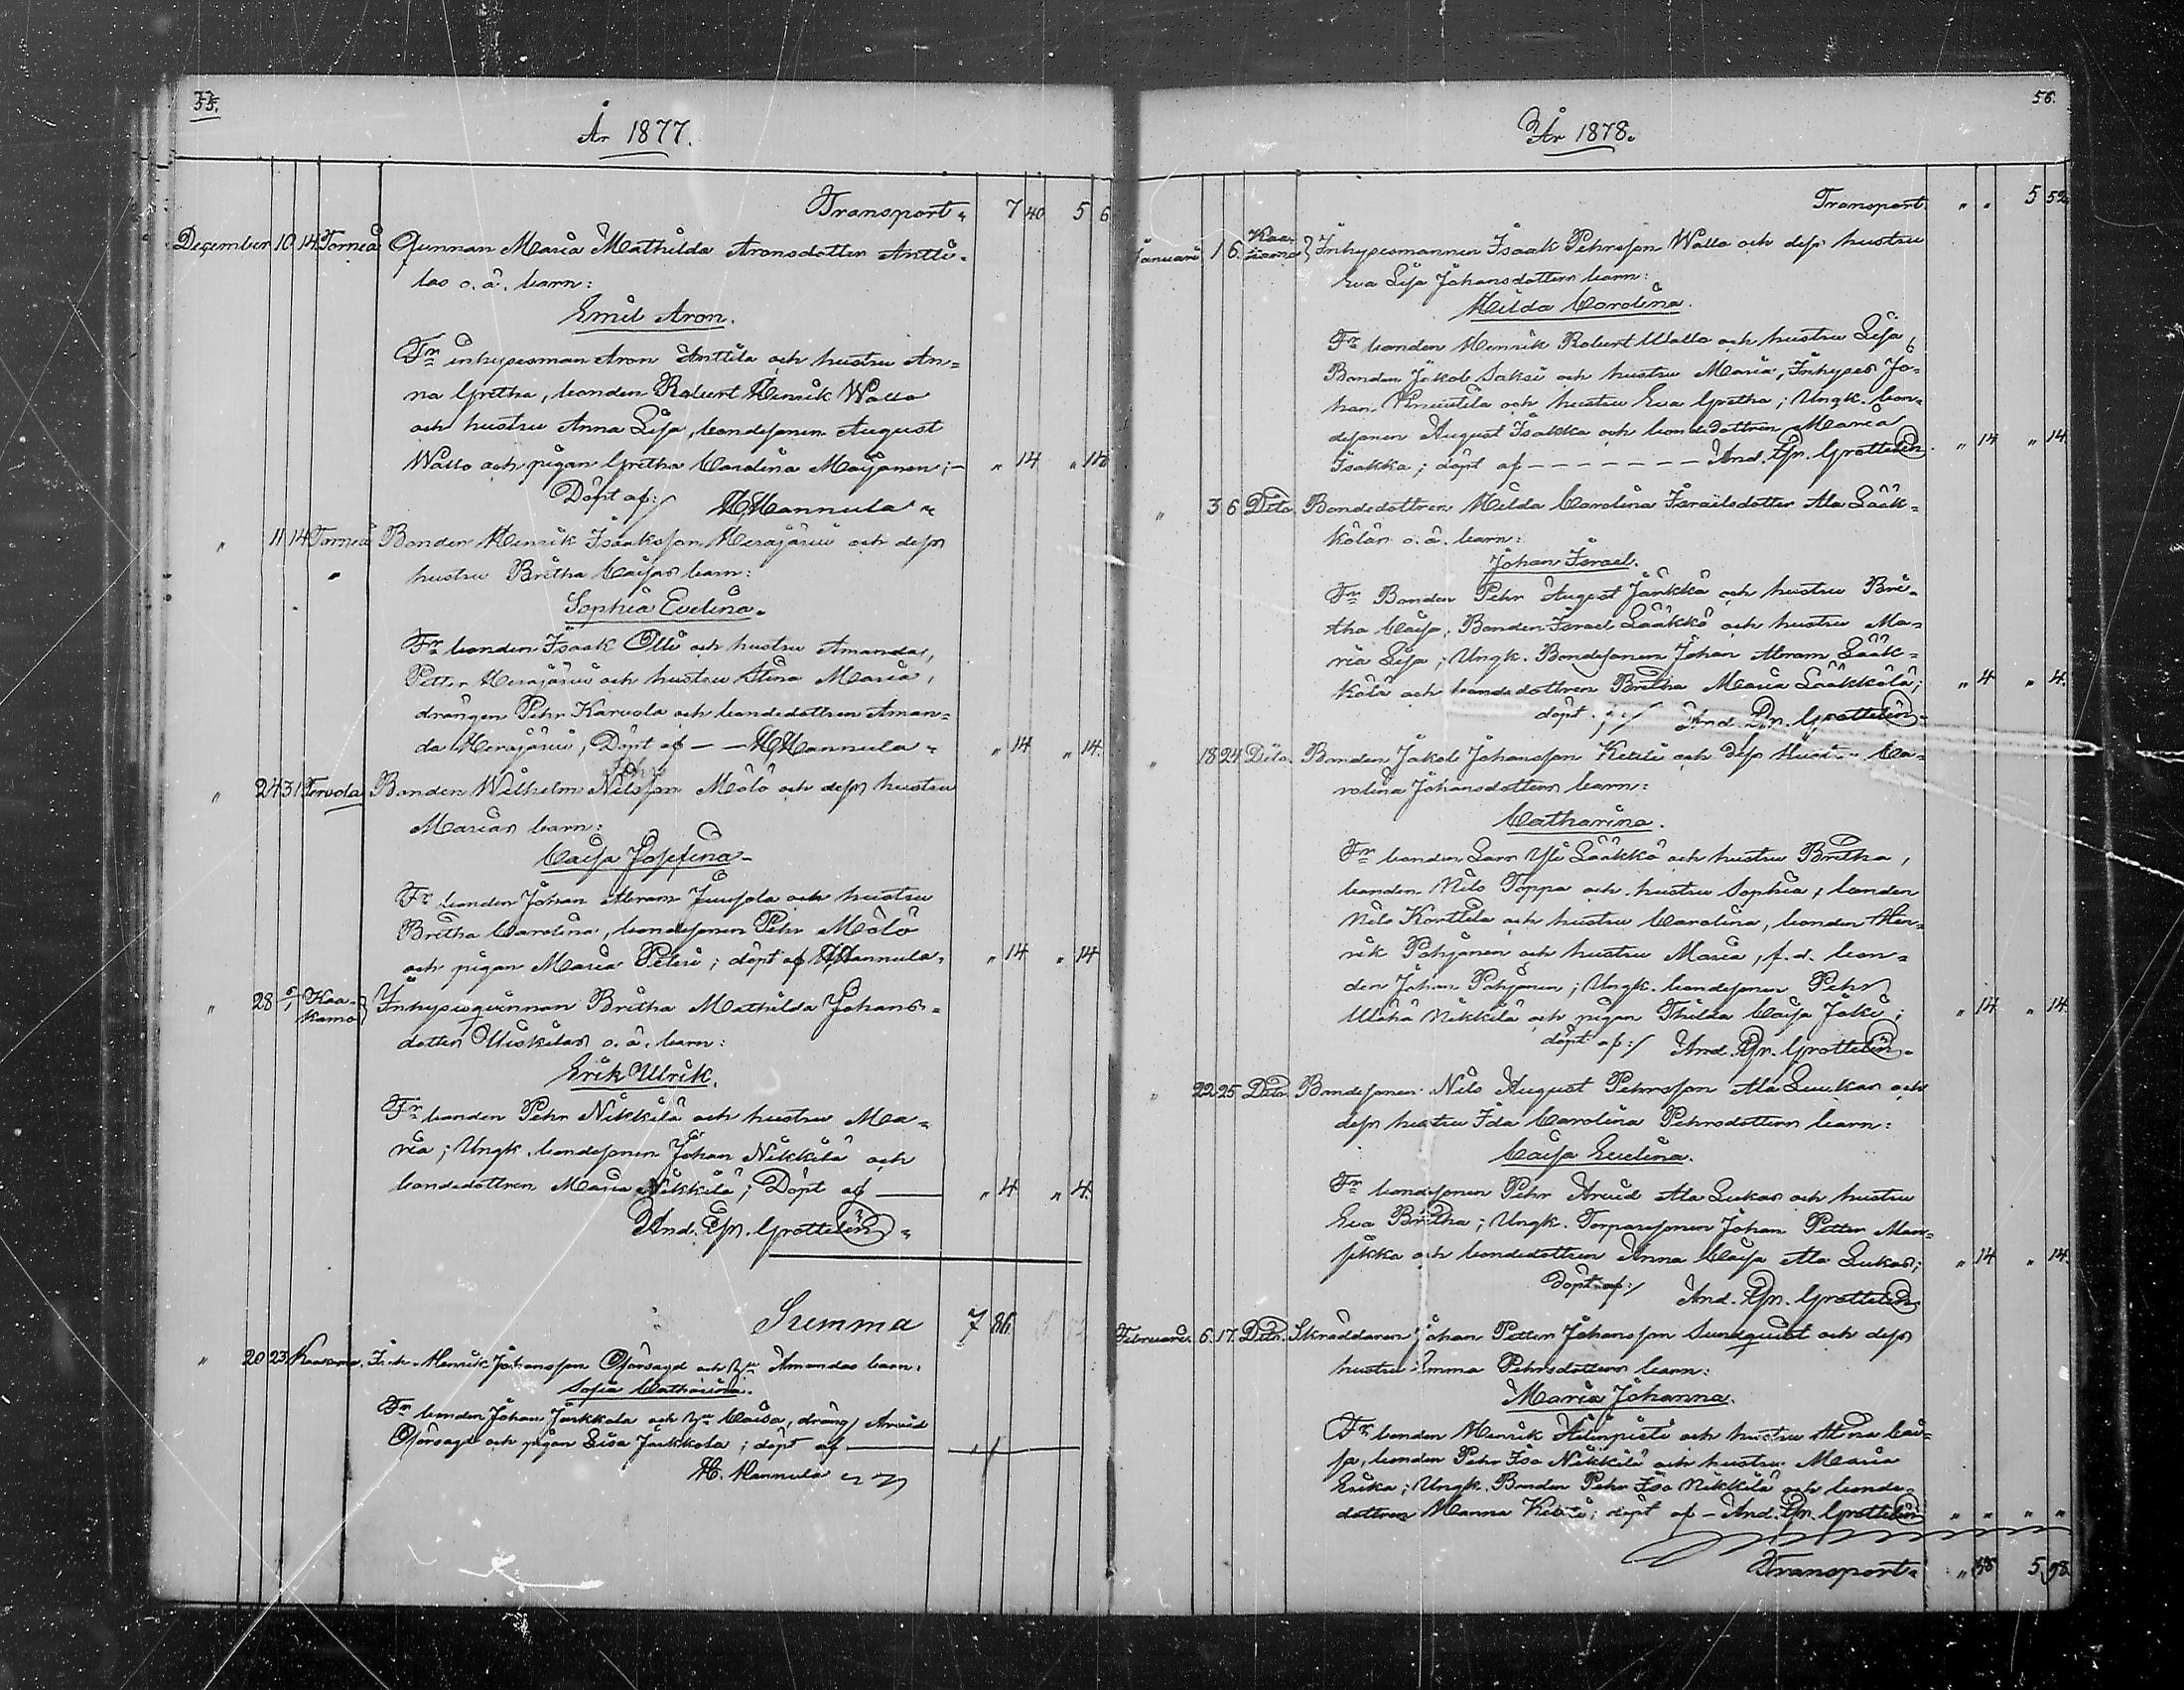 55.
År 1877.
Transport " 7 40 5 6
December 10 14 Torneå Qvinnan Maria Mathilda Aronsdotter Antti-
las o. ä. barn:
Emil Aron.
Fr inhysesman Aron Anttila och hustru An=
na Gretha, bonden Robert Henrik Wallo
och hustru Anna Lisa, bondesonen August
Wallo och pigan Gretha Carolina Maijanen; — " 14 " 14
Döpt af:/ H Hannula "
" 11 14 Torneå Bonden Henrik Isaaksson Herajärvi och dess
" hustru Britha Caisas barn:
Sophia Evelina.
Fr bonden Isaak Olli och hustru Amanda,
Petter Herajärvi och hustru Stina Maria,
drängen Pehr Karvola och bondedottren Aman=
da Herajärvi, Döpt af — — H Hannula " " 14 " 14.
" 24 31 Tervola Bonden Wilhelm Nilsson Mölö och dess hustru
Marias barn:
Caisa Josefina -
Fr bonden Johan Abram Juusola och hustru
Britha Carolina, bondesonen Pehr Mölö
och pigan Maria Peteri; döpt af H Hannula. " 14 " 14
" 28 6/1 Kaa-
kamo } Inhysesqvinnan Britha Mathilda Johans=
dotter Uiskilas o. ä. barn:
Erik Ulrik.
Fr bonden Pehr Nikkilä och hustru Ma=
ria; Ungk. bondesonen Johan Nikkilä och
bondedottren Maria Nikkilä; Döpt af — " 4 " 4.
And. Gr. Grottelin "
Summa 7 86
" 20 23 Kaakamo. Henrik Johansson Oförsagd och hu Amandas barn:
Sofia Catharina.
Fr bonden Johan Jarkkola och hu Caisa, dräng Arvid
Oförsagd och pigan Lisa Jarkkola; döpt af —
H. Hannula
56.
År 1878.
Transport. " " 5 52
Januari 1 6. Kaa-
kamo } Inhysesmannen Isaak Pehrsson Wallo och dess hustru
Eva Lisa Johansdotters barn:
Hilda Carolina.
Fr bonden Henrik Robert Wallo och hustru Lisa,
Bonden Jakob Saksi och hustru Maria, Inhyses Jo=
han och hustru Eva Gretha; Ungk. bon=
desonen August Isakka och bondedottren Maria
Isakka; döpt af — — — — And. Gr. Grottelin. " 14 " 14.
" 3 6 Dito. Bondedottren Hilda Carolina Israëlsdotter Ala Lääk=
köläs o. ä. barn:
Johan Israel.
Fr Bonden Pehr August Jarkkä och hustru Bri=
tha Caisa, Bonden Israel Lääkkö och hustru Ma=
ria Lisa; Ungk. Bondesonen Johan Abram Lääk=
kölä och bondedottren Britha Maria Lääkkölä; " 4 " 4.
döpt af:/ And. Gr. Grottelin.
" 18 24 Dito. Bonden Jakob Johansson Kettu och dess Hustru Ca=
rolina Johansdotters barn:
Catharina.
Fr bonden Lars Yli Lääkkö och hustru Britha,
bonden Nils Toppa och hustru Sophia, bonden
Nils Korttila och hustru Carolina, bonden Hen=
rik Pohjanen och hustru Maria, f. d. bon=
den Johan Pohjanen; Ungk. bondesonen Pehr
Nikkilä och pigan Thilda Caisa Joki; " 14 " 14.
döpt af:/ And. Gr. Grottelin.
" 22 25 Dito. Bondesonen Nils August Pehrsson Ala Luukas och
dess hustru Ida Carolina Pehrsdotters barn:
Caisa Evelina.
Fr bondesonen Pehr Arvid Ala Lukas och hustru
Eva Britha; Ungk. Torparesonen Johan Petter Man=
sikka och bondedottren Anna Caisa Ala Lukas; " 14 " 14.
döpt af:/ And. Gr. Grottelin.
Februari. 6. 17. Dito. Skräddaren Johan Petter Johansson Sundquist och dess
hustru Emma Pehrsdotters barn:
Maria Johanna.
Fr bonden Henrik Alinpieti och hustru Stina Cai=
sa, bonden Pehr Iso Nikkilä och hustru Maria
Erika; Ungk. Bonden Pehr Iso Nikkilä och bonde-
dottren Hanna; döpt af — And. Gr. Grottelin " " " "
Transport " " 46 5 98